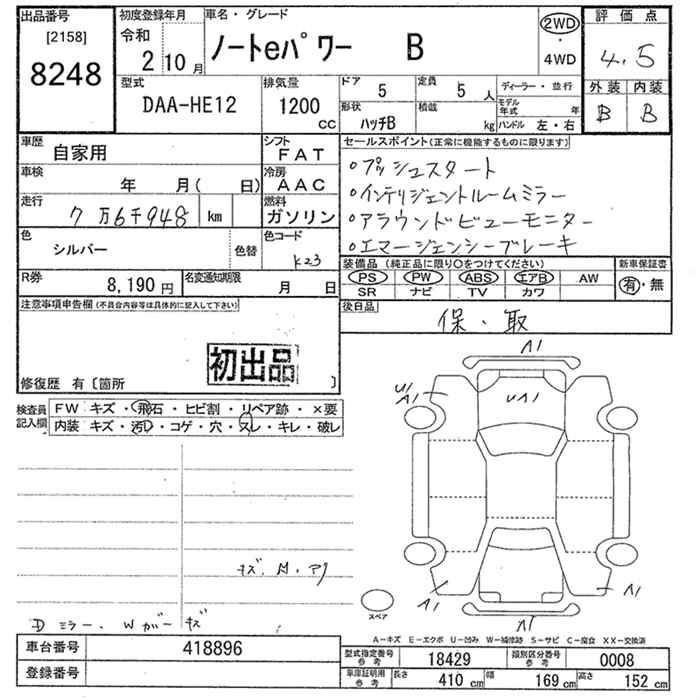 出品番号
[2158]
8248
初度登録年月
令和
2 10月
車名・グレード
ノートeパワー B
2WD
・
4WD
評価点
4.5
外装 内装
B B
型式
DAA-HE12
排気量
1200
cc
ドア
5
定員
5人
形状
ハッチB
積載
kg
ディーラー・並行
モデル年式 年
ハンドル 左・右
車歴
自家用
シフト
FAT
車検
年 月( 日)
冷房
AAC
走行
7万6千948 km
燃料
ガソリン
色
シルバー
色替
色コード
K23
R券
8,190円
名変通知期限
月 日
セールスポイント(正常に機能するものに限ります)
○プッシュスタート
○インテリジェントルームミラー
○アラウンドビューモニター
○エマージェンシーブレーキ
装備品(純正品に限り○をつけてください)
PS PW ABS エアB AW
SR ナビ TV カワ
新車保証書
有・無
後日品
保・取
注意事項申告欄(不具合内容等は具体的に記入して下さい)
初出品
修復歴 有〔箇所 〕
検査員
記入欄
FW キズ・飛石・ヒビ割・リペア跡・×要
内装 キズ・汚レ・コゲ・穴・スレ・キレ・破レ
A1
U1
A1
UA1
A1
A1
A1
スペア
Dミラー. Wガー キズ
A-キズ E-エクボ U-凹み W-補修跡 S-サビ C-腐食 XX-交換済
車台番号
418896
登録番号
型式指定番号
参考
18429
類別区分番号
参考
0008
車庫証明用
参考
長さ
410 cm
幅
169 cm
高さ
152 cm